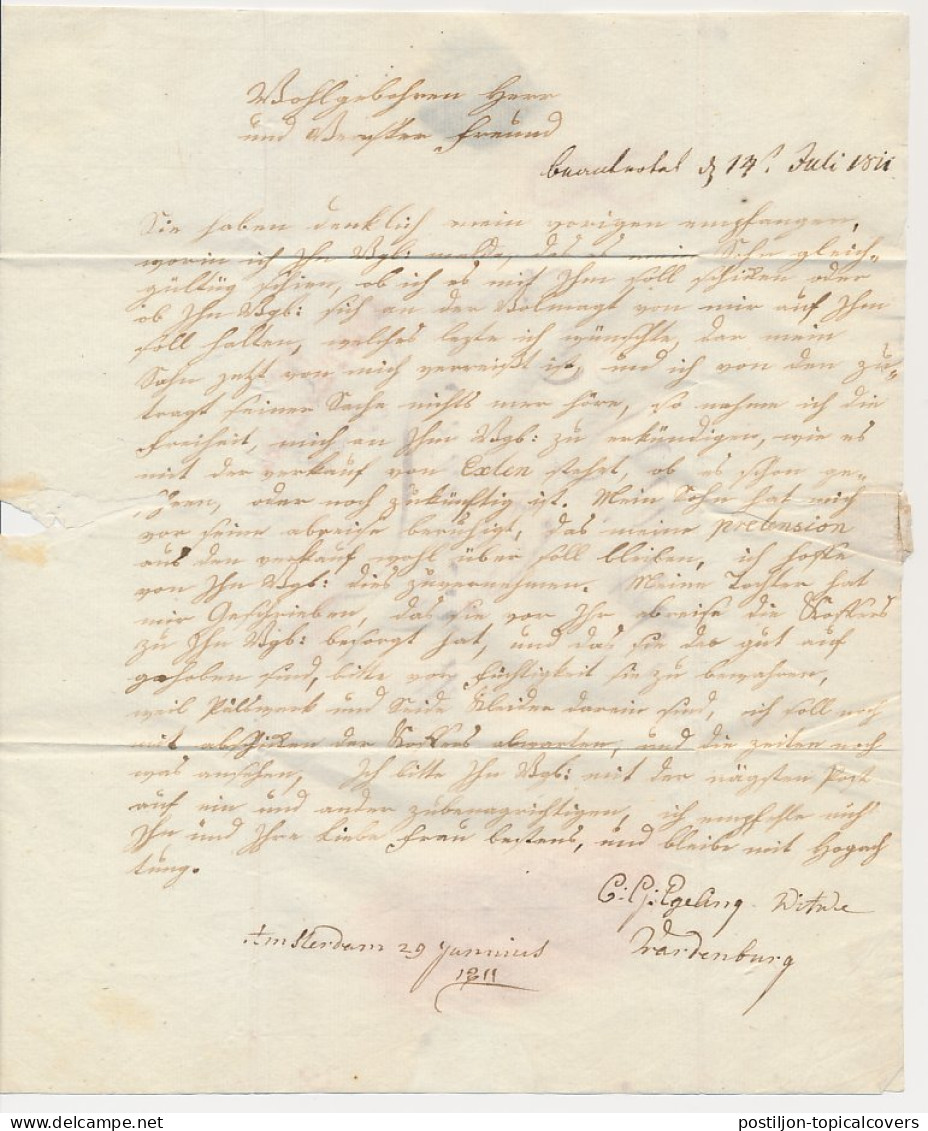 Wohlgebohren Herr
und Werster Freund
beantwortet d 14t Juli 1811
Sie haben denklich mein vorigen empfangen,
worin ich Ihn Wgb: melde, das es mein Sohn gleich=
gültig schien, ob ich es mit Ihm soll schiken oder
ob Ihn Wgb: sich an der Volmagt von mir auf Ihm
soll halten, welches lezte ich wünschte, dar mein
Sohn jetzt von mich verreißt ist, und ich von den zu=
tragt seiner Sache nichts mer höre, so nehme ich die
Freiheit, mich an Ihm Wgb: zu erkündigen, wie es
mit der verkauf von Exten stehet, ob es schon ge=
oder noch zukünftig ist. Mein Sohn hat mich
vor seine abreise beruhigt, das meine pretension
aus den verkauf wohl über soll bleiben, ich hoffe
von Ihn Wgb: dies zuvernehmen. Meine Tochter hat
mir Geschrieben, das sie vor Ihr abreise die Koffers
zu Ihn Wgb: besorgt hat, und das sie da gut auf
gehoben sind, bitte vor füchtigkeit sie zu bewahren,
weil Pällwerk und Seide Kleider darein sind, ich soll noch
mit abschiken der Koffers abwarten, und die zeiten noch
was ansehen, Ich bitte Ihn Wgb: mit der nägsten Post
auf ein und ander zubenagrichtigen, ich empfehle mich
Ihn und Ihre Liebe Frau bestens, und bleibe mit Hogach
tung.
C: G: Egeling Witwe
Wardenburg
Amsterdam 29 Junnius
1811
postiljon-topicalcovers